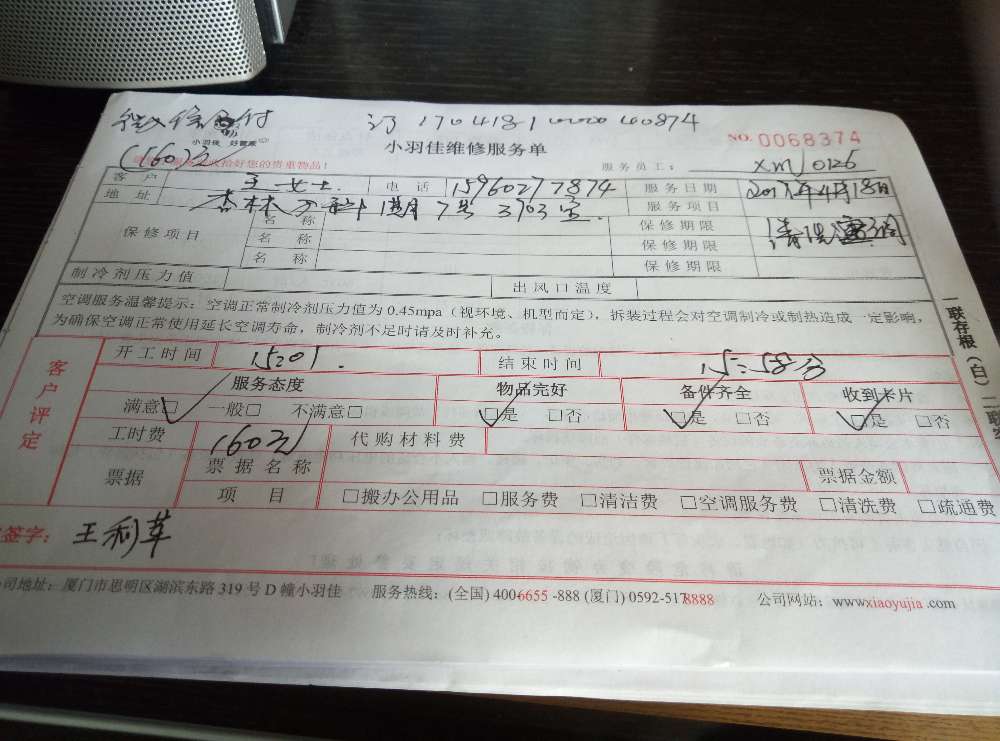 微信已付 订 1704181000040874
小羽佳 好管家
小羽佳维修服务单 NO. 0068374
(160元) 收拾好您的贵重物品! 服务员工: xmJ0126
客户 王女士. 电话 15960277874 服务日期 2017年4月18日
地址 7号 3703室 服务项目 清洗空调
保修项目 名称 保修期限
名称 保修期限
名称 保修期限
制冷剂压力值 出风口温度
空调服务温馨提示:空调正常制冷剂压力值为 0.45mpa(视环境、机型而定),拆装过程会对空调制冷或制热造成一定影响,
为确保空调正常使用延长空调寿命,制冷剂不足时请及时补充。
一联存根(白)二联客
客户评定
开工时间 15:01. 结束时间 15:58分
服务态度 物品完好 备件齐全 收到卡片
满意□ 一般□ 不满意□ □是 □否 □是 □否 □是 □否
工时费 160元 代购材料费
票据 票据名称 票据金额
项目 □搬办公用品 □服务费 □清洁费 □空调服务费 □清洗费 □疏通费
签字: 王利苹
司地址:厦门市思明区湖滨东路 319 号 D 幢小羽佳 服务热线:(全国) 4006655 -888 (厦门) 0592-5178888 公司网站:www.xiaoyujia.com